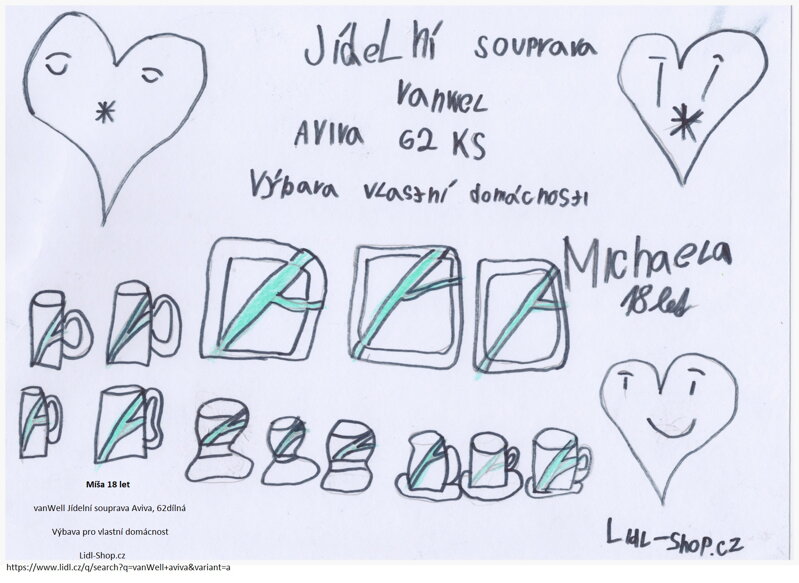 Jídelní souprava
vanwel
Aviva 62 KS
Výbara vlastní domácnosti
Michaela
18 let
Lidl-shop.cz
Míša 18 let
vanWell Jídelní souprava Aviva, 62dílná
Výbava pro vlastní domácnost
Lidl-Shop.cz
https://www.lidl.cz/q/search?q=vanWell+aviva&variant=a